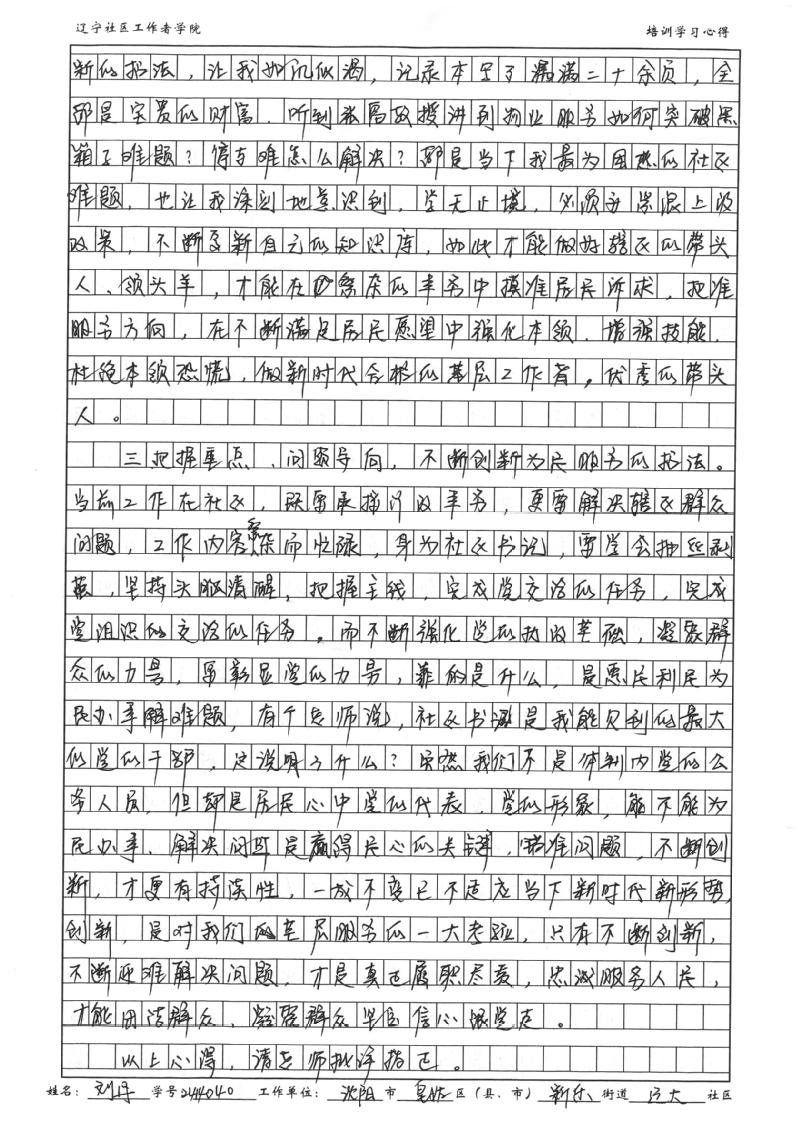 辽宁社区工作者学院 培训学习心得
新的招法，让我如饥似渴，记录本写了满满二十余页，全
都是宝贵的财富。听到张高教授讲到物业服务如何突破黑
箱子难题？停车难怎么解决？都是当下我最为困惑的社区
难题，也让我深刻地意识到，学无止境，必须
，不断更新自己的知识库，如此才能做好辖区的带头
人、领头羊，才能在繁杂的事务中摸准居民诉求，把准
服务方向，在不断满足居民愿望中强化本领、增强技能，
杜绝本领恐慌，做新时代合格的基层工作者。优秀的带头
人。
三把握重点、问题导向，不断创新为民服务的招法。
当前工作在社区，既需承接行政事务，更需解决辖区群众
问题，工作内容繁杂而忙碌，身为社区书记，需学会抽丝剥
茧，坚持头脑清醒，把握主线，完成党交给的任务，完成
党组织的交给的任务。而不断强化党的执政基础，凝聚群
众的力量，需彰显党的力量，靠的是什么，是惠民利民为
民办事解难题，有个老师说，社区书记是我能见到的最大
的党的干部，这说明了什么？虽然我们不是体制内党的公
务人员，但却是居民心中党的代表，党的形象，能不能为
民办事、解决问题是赢得民心的关键，瞄准问题，不断创
新，才更有持续性，一成不变已不适应当下新时代新形势，
创新，是对我们的基层服务的一大考验，只有不断创新，
不断迎难解决问题，才是真正履职尽责，忠诚服务人民，
才能团结群众、凝聚群众坚定信心跟党走。
以上心得，请老师批评指正。
姓名：刘丹 学号2144040 工作单位：沈阳市皇姑区（县、市）新乐街道辽大社区